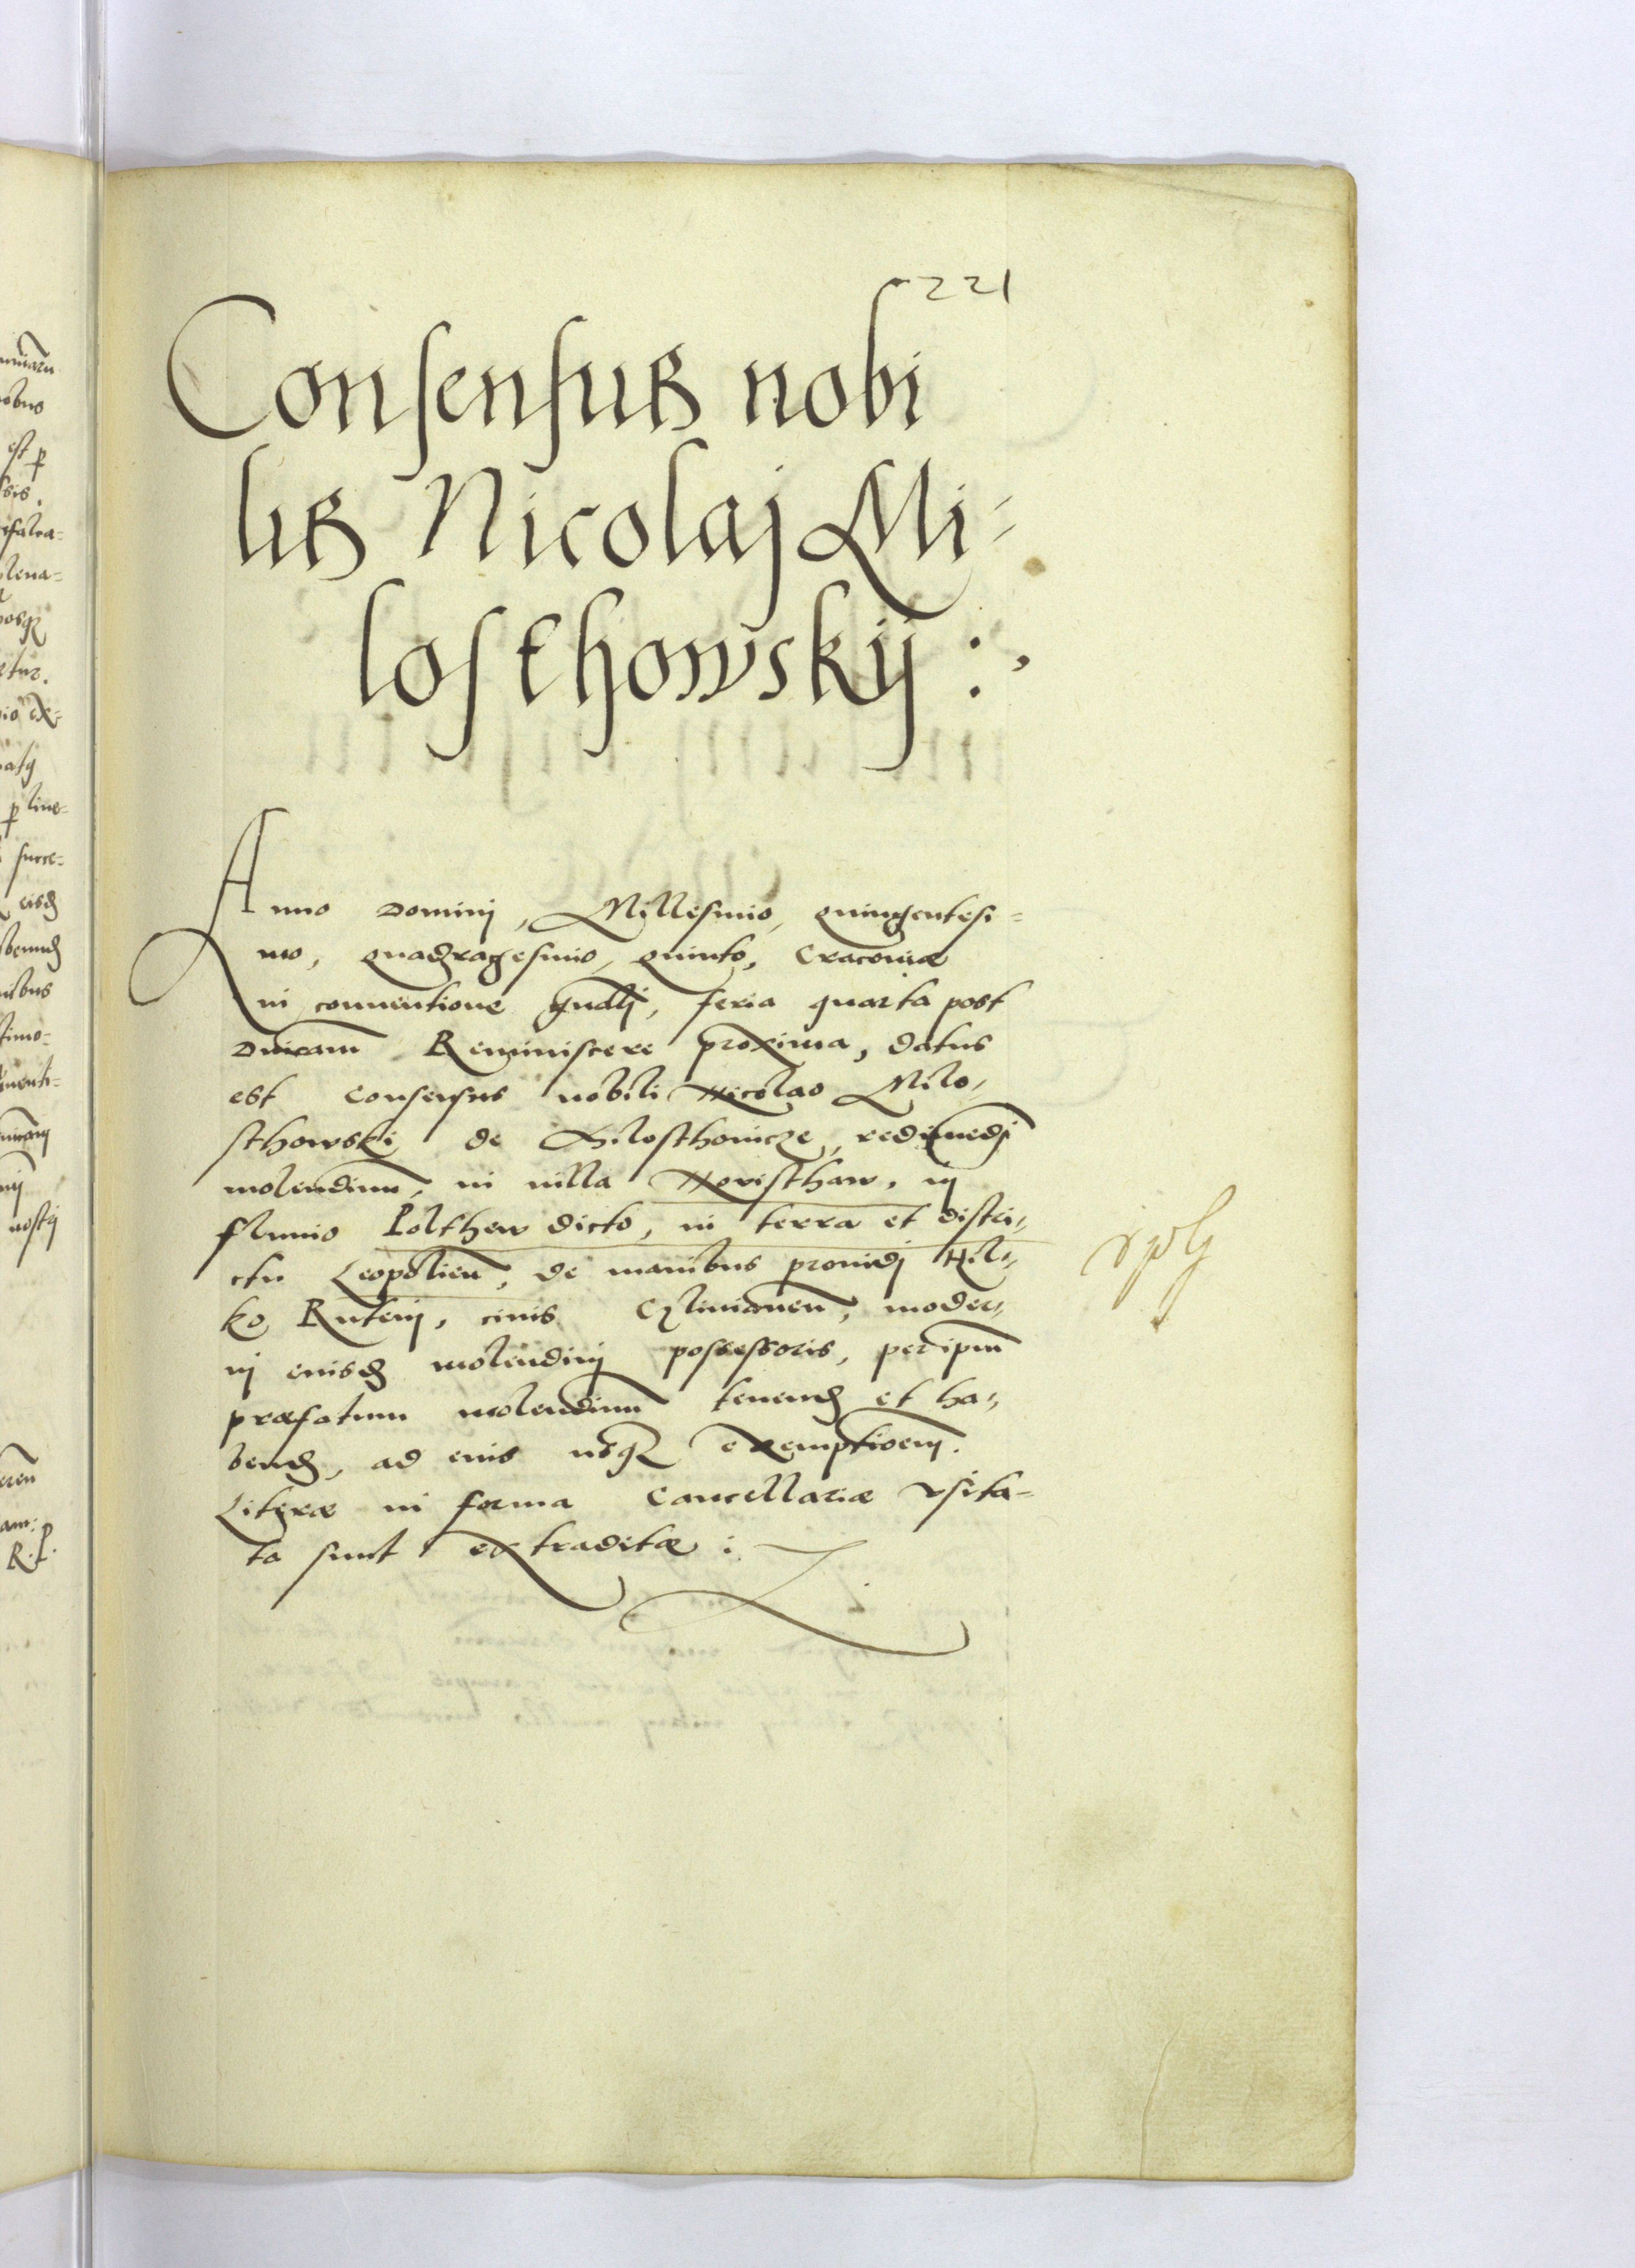 221
Consensus nobi
lis Nicolaj Mi-
losthowskij :,
Anno Domini, Millesimo, quingentesi-
mo, quadragesimo, quinto, Cracoviæ
in conventione gnali, feria quarta post
Dnicam Reminiscere proxima, datus
est consensus nobili Nicolao Milo-
sthowski de Milosthovicze, redimendi
molendinum, in villa Noristhaw, in
fluvio Polthew dicto, in terra et distri-
ctu Leopolien, de manibus providi Hil-
ko Ruteni, civis Glinianen, moder-
ni eiusd molendini possessoris, per ipm
præfatum molendinum tenend et ha-
bend, ad eius usq exemptioem.
Literæ in forma Cancellariæ usita-
ta sunt extraditæ :